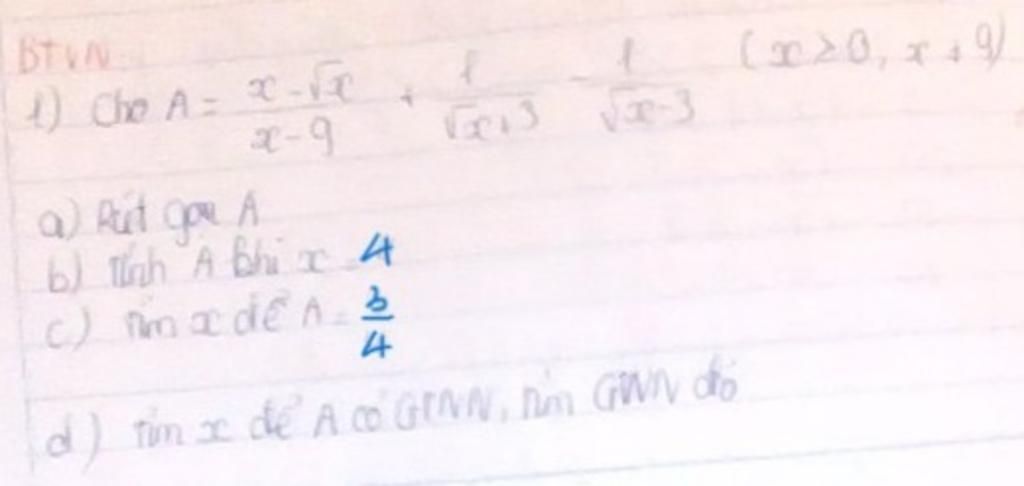 BTVN
1) Cho A = \frac{x-\sqrt{x}}{x-9} + \frac{1}{\sqrt{x}+3} - \frac{1}{\sqrt{x}-3} (x ≥ 0, x ≠ 9)
a) Rút gọn A
b) Tính A khi x = 4
c) Tìm x để A = \frac{3}{4}
d) Tìm x để A có GTNN, tìm GTNN đó